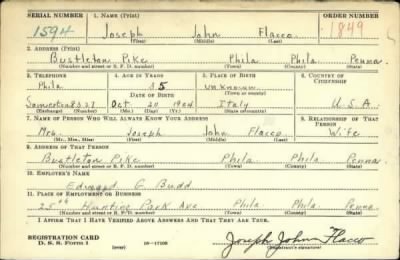 SERIAL NUMBER 1. NAME (Print) ORDER NUMBER
1594 Joseph John Flacco 1849
(First) (Middle) (Last)
2. ADDRESS (Print)
Bustleton Pike Phila Phila Penna
(Number and street or R. F. D. number) (Town) (County) (State)
3. TELEPHONE 4. AGE IN YEARS 5. PLACE OF BIRTH 6. COUNTRY OF CITIZENSHIP
Phila 35 unknown
DATE OF BIRTH (Town or county)
Somerton Oct 20 1904 Italy U.S.A.
(Exchange) (Number) (Mo.) (Day) (Yr.) (State or country)
7. NAME OF PERSON WHO WILL ALWAYS KNOW YOUR ADDRESS 8. RELATIONSHIP OF THAT PERSON
Mrs Joseph John Flacco Wife
(Mr., Mrs., Miss) (First) (Middle) (Last)
9. ADDRESS OF THAT PERSON
Bustleton Pike Phila Phila Penna
(Number and street or R. F. D. number) (Town) (County) (State)
10. EMPLOYER'S NAME
Edward G. Budd
11. PLACE OF EMPLOYMENT OR BUSINESS
25th Hunting Park Ave Phila Phila Penna
(Number and street or R. F. D. number) (Town) (County) (State)
I AFFIRM THAT I HAVE VERIFIED ABOVE ANSWERS AND THAT THEY ARE TRUE.
REGISTRATION CARD
D. S. S. Form 1 (over) 16—17105 Joseph John Flacco